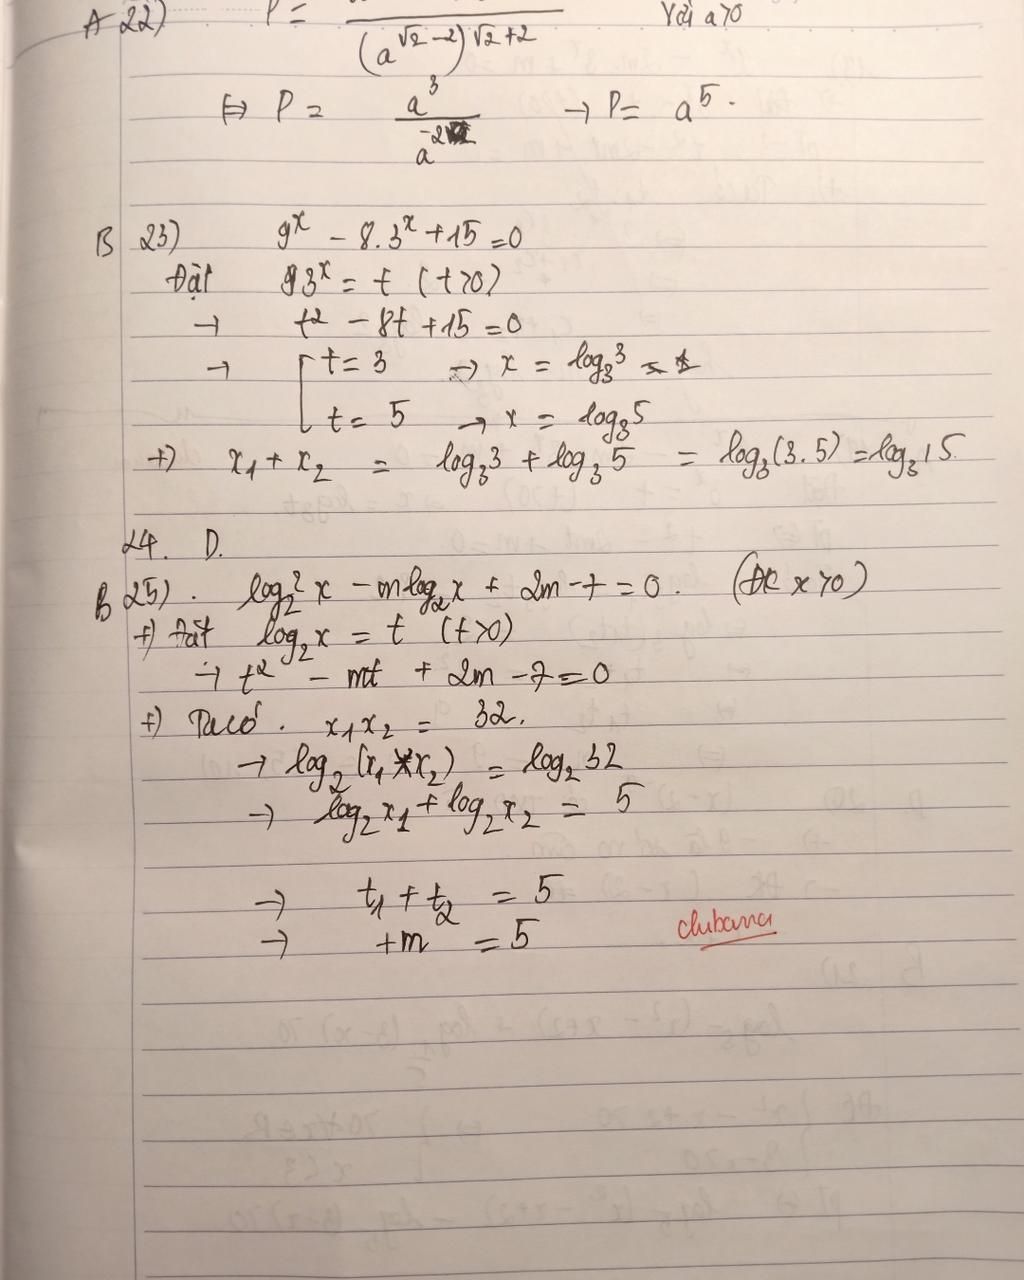 A 22) P = Với a>0
(a^{√2-2})^{√2+2}
⇔ P = a^3 / a^{-2} → P = a^5.
B 23) 9^x - 8.3^x + 15 = 0
Đặt 3^x = t (t>0)
→ t^2 - 8t + 15 = 0
→ [ t = 3 → x = log_3 3 = 1
t = 5 → x = log_3 5
+) x_1 + x_2 = log_3 3 + log_3 5 = log_3 (3.5) = log_3 15.
24. D.
B 25). log_2^2 x - m log_2 x + 2m - 7 = 0. (ĐK x>0)
+) Đặt log_2 x = t (t>0)
→ t^2 - mt + 2m - 7 = 0
+) Ta có. x_1 x_2 = 32.
→ log_2 (x_1 * x_2) = log_2 32
→ log_2 x_1 + log_2 x_2 = 5
→ t_1 + t_2 = 5
→ +m = 5